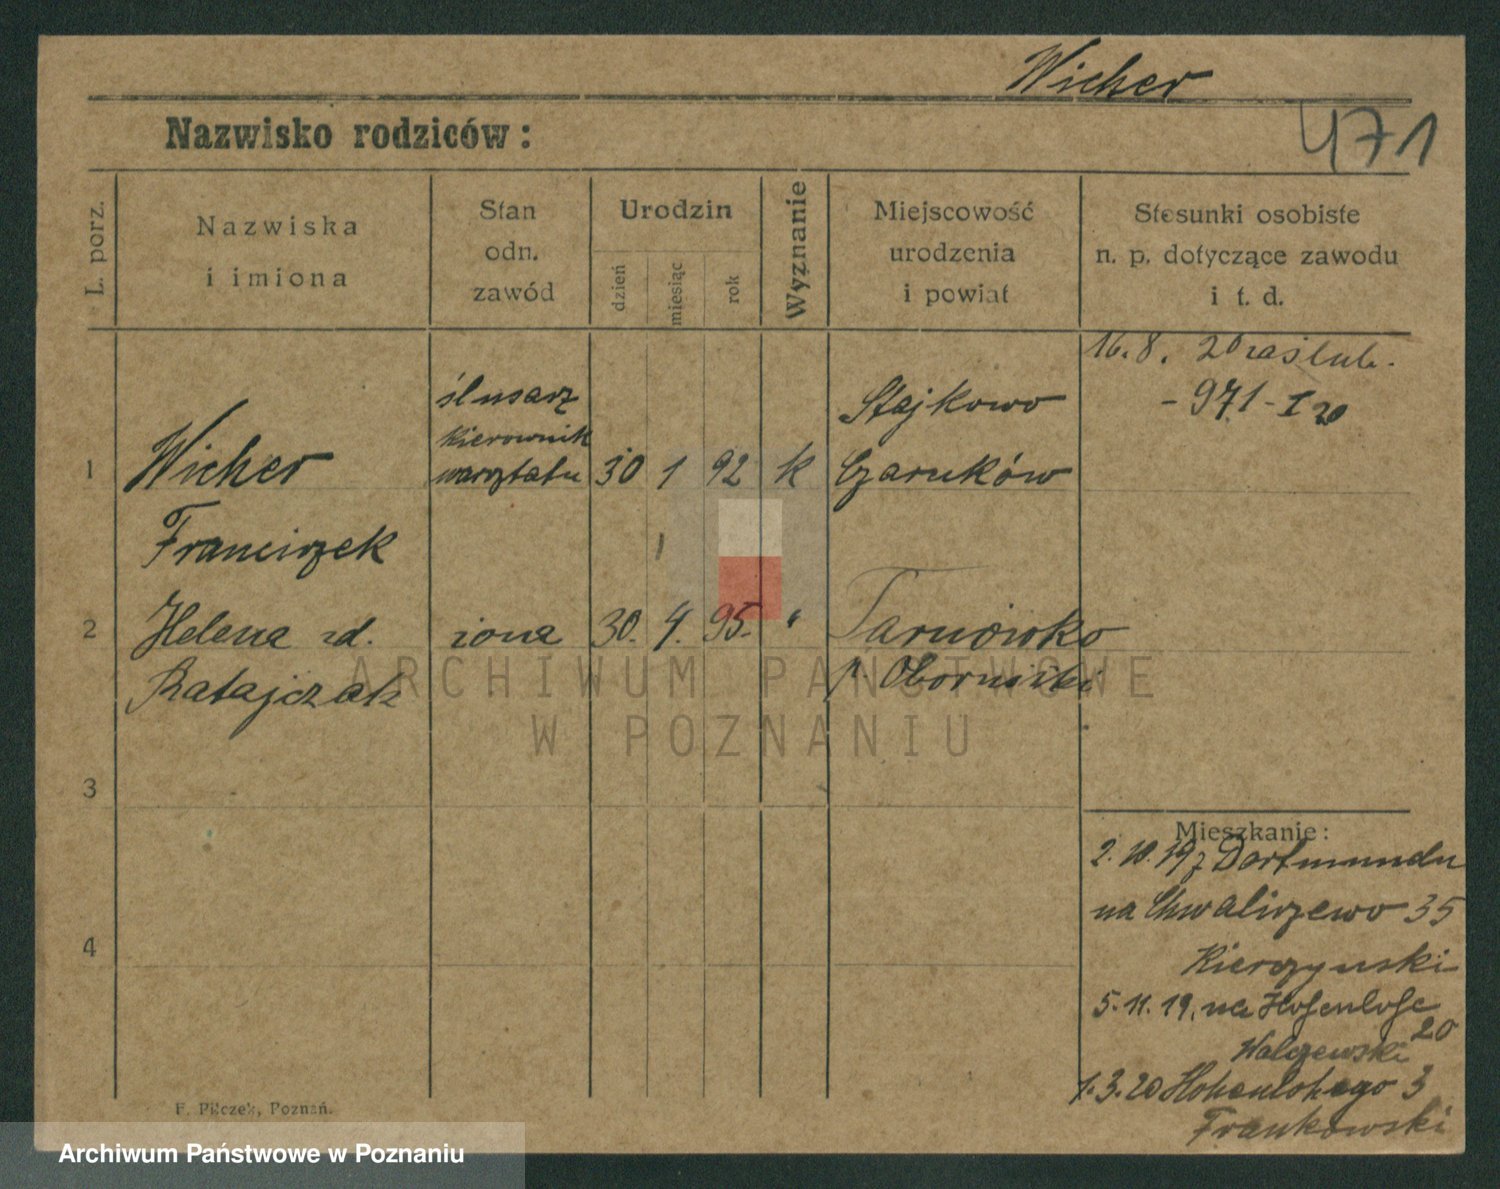 Wicher
Nazwisko rodziców:
471
L. porz.
Nazwiska
i imiona
Stan
odn.
zawód
Urodzin
dzień
miesiąc
rok
Wyznanie
Miejscowość
urodzenia
i powiat
Stosunki osobiste
n. p. dotyczące zawodu
i t. d.
16.8. 20 zaślub.
- 971-I 20
1
Wicher
Franciszek
ślusarz
kierownik
warsztatu
30 1 92 k
Stajkowo
Czarnków
2
Helena zd.
Ratajczak
żona
30. 4. 95. "
Tarnówko
p. Oborniki
3
4
Mieszkanie:
2.10.19 z Dortmundu
na Chwaliszewo 35
Kierzynski
5.11.19. na Hohenlohe
20
Walczewski
1.3.20 Hohenlohego 3
Frankowski
F. Pilczek, Poznań.
ARCHIWUM PAŃSTWOWE
W POZNANIU
Archiwum Państwowe w Poznaniu